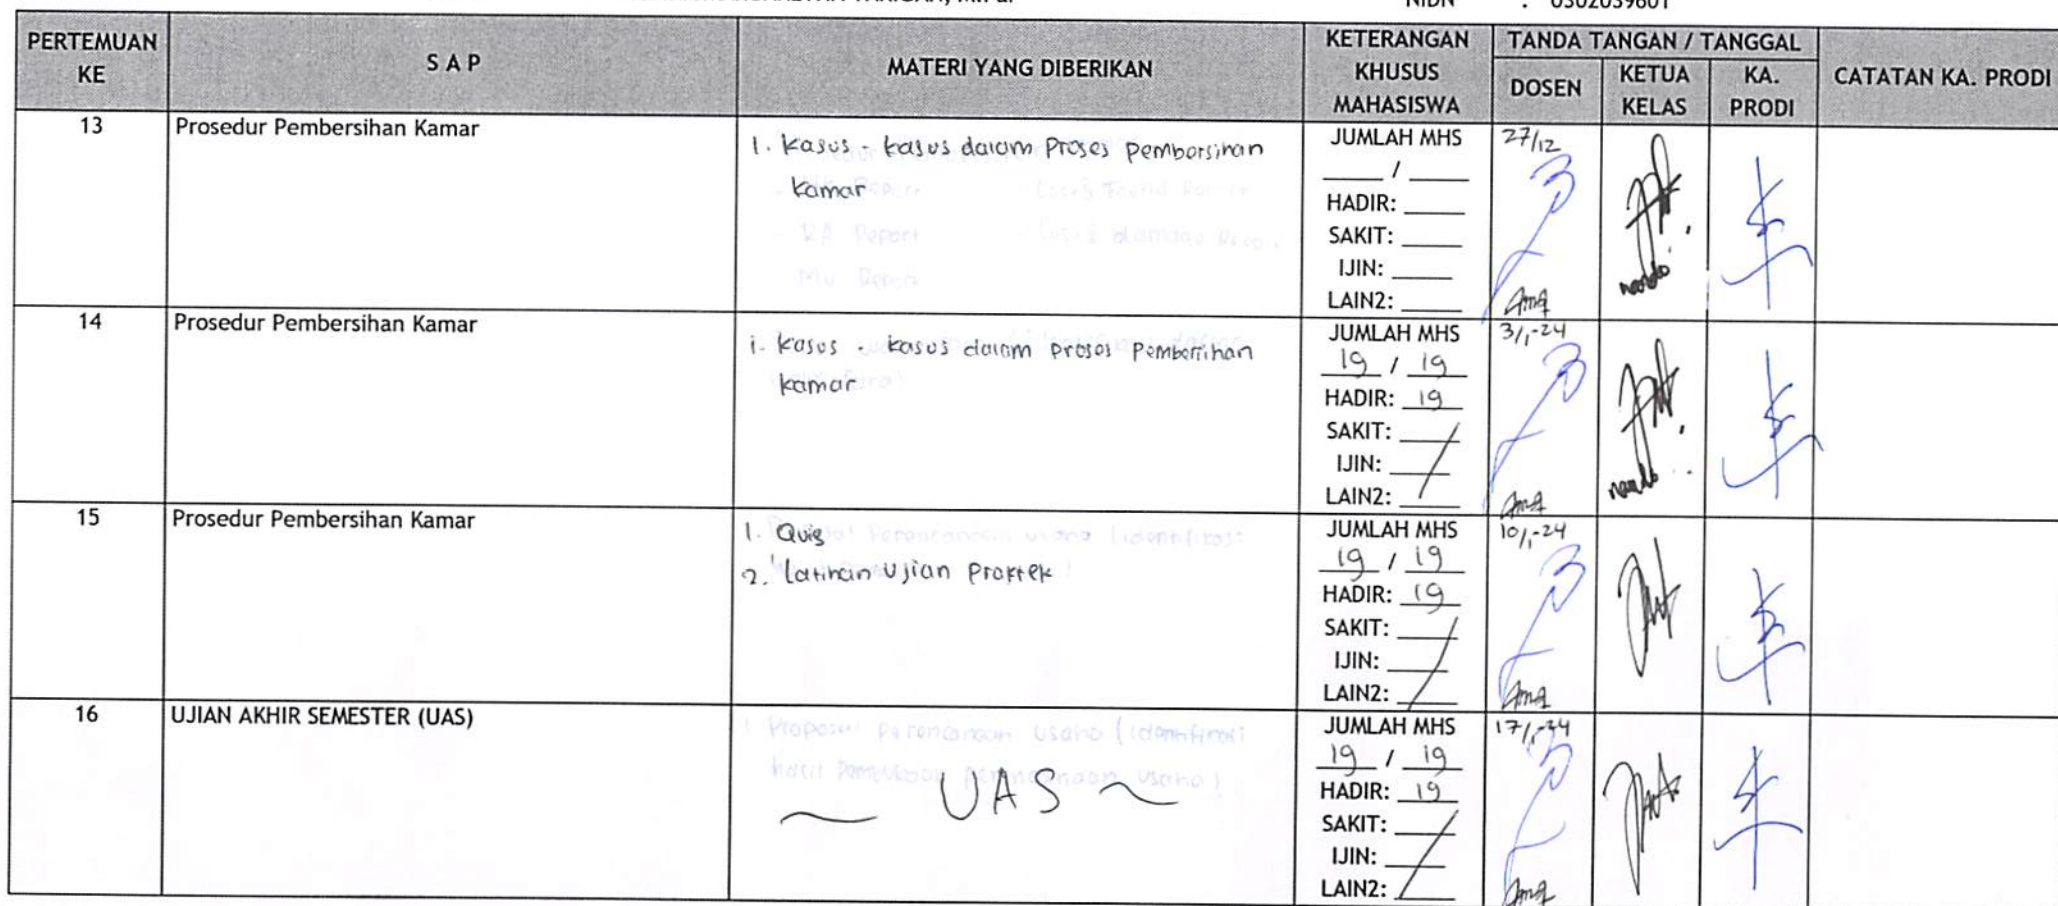 NIDN : 0302039601
PERTEMUAN KE
S A P
MATERI YANG DIBERIKAN
KETERANGAN KHUSUS MAHASISWA
TANDA TANGAN / TANGGAL
DOSEN
KETUA KELAS
KA. PRODI
CATATAN KA. PRODI
13
Prosedur Pembersihan Kamar
1. Kasus - kasus dalam Proses Pembersihan
kamar
JUMLAH MHS
/
HADIR:
SAKIT:
IJIN:
LAIN2:
27/12
nando
14
Prosedur Pembersihan Kamar
1. Kasus - kasus dalam proses Pembersihan
kamar
JUMLAH MHS
19 / 19
HADIR: 19
SAKIT:
IJIN:
LAIN2:
3/1-24
nando
15
Prosedur Pembersihan Kamar
1. Quis
2. Latihan Ujian Praktek
JUMLAH MHS
19 / 19
HADIR: 19
SAKIT:
IJIN:
LAIN2:
10/1-24
16
UJIAN AKHIR SEMESTER (UAS)
~ UAS ~
JUMLAH MHS
19 / 19
HADIR: 19
SAKIT:
IJIN:
LAIN2:
17/1-24